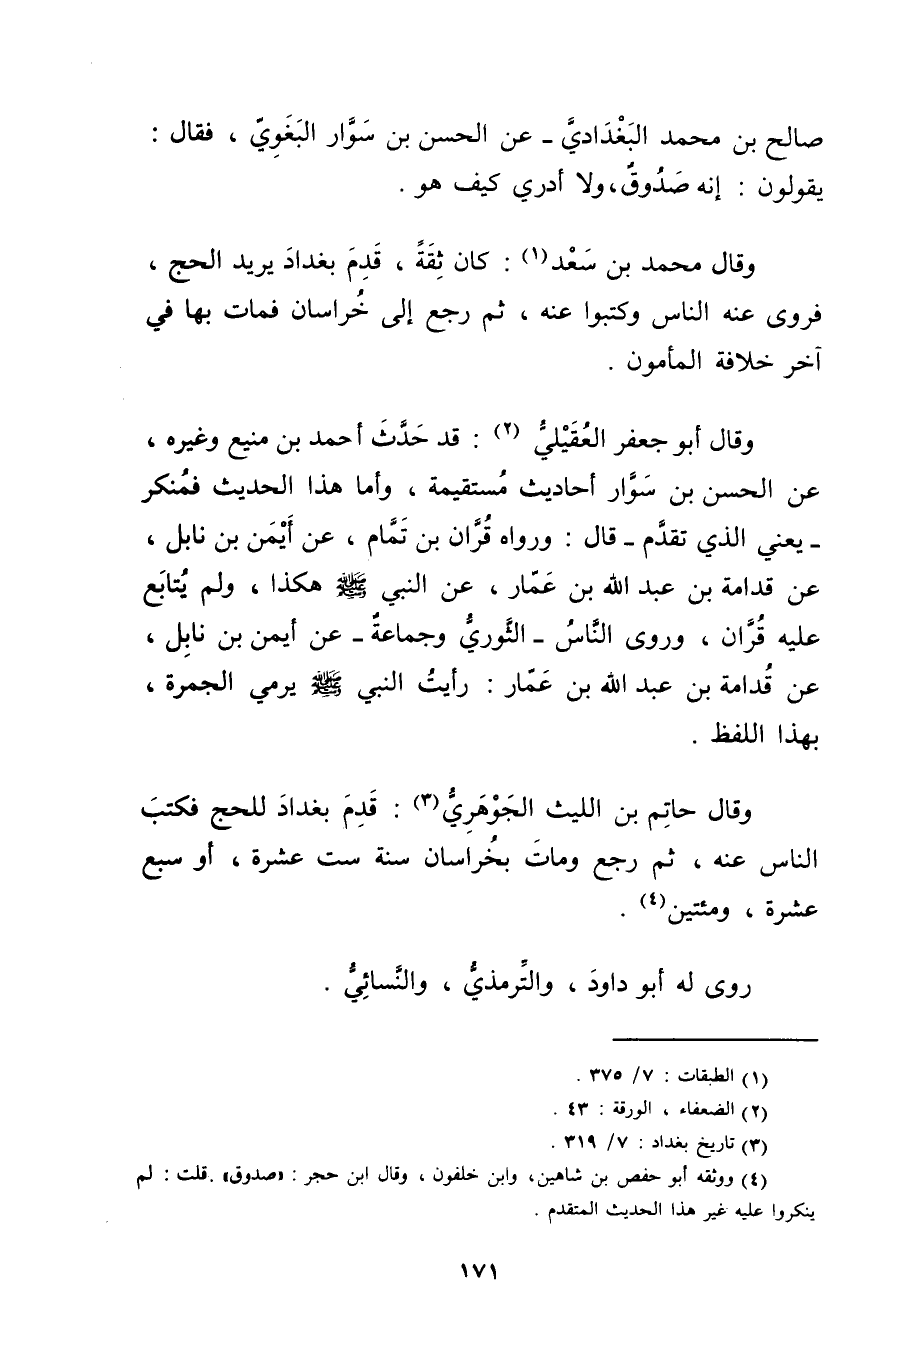 صالح بن محمد البَغْدَاديَّ ـ عن الحسن بن سَوَّار البَغَويّ ، فقال :
يقولون : إنه صَدُوقٌ، ولا أدري كيف هو .
وقال محمد بن سَعْد(١) : كان ثِقَةً ، قَدِمَ بغدادَ يريد الحج ،
فروى عنه الناس وكتبوا عنه ، ثم رجع إلى خُراسان فمات بها في
آخر خلافة المأمون .
وقال أبو جعفر العُقَيْليُّ (٢) : قد حَدَّثَ أحمد بن منيع وغيره ،
عن الحسن بن سَوَّار أحاديث مُستقيمة ، وأما هذا الحديث فمُنكر
ـ يعني الذي تقدَّم ـ قال : ورواه قُرَّان بن تَمَّام ، عن أَيْمَن بن نابل ،
عن قدامة بن عبد الله بن عَمّار ، عن النبي ﷺ هكذا ، ولم يُتابَع
عليه قُرَّان ، وروى النَّاسُ ـ الثَّوريُّ وجماعةٌ ـ عن أيمن بن نابِل ،
عن قُدامة بن عبد الله بن عَمّار : رأيتُ النبي ﷺ يرمي الجمرة ،
بهذا اللفظ .
وقال حاتِم بن الليث الجَوْهَريُّ(٣) : قَدِمَ بغدادَ للحج فكتبَ
الناس عنه ، ثم رجع وماتَ بخُراسان سنة ست عشرة ، أو سبع
عشرة ، ومئتين(٤) .
روى له أبو داودَ ، والتِّرمذيُّ ، والنَّسائِيُّ .
(١) الطبقات : ٧/ ٣٧٥ .
(٢) الضعفاء ، الورقة : ٤٣ .
(٣) تاريخ بغداد : ٧/ ٣١٩ .
(٤) ووثقه أبو حفص بن شاهين، وابن خلفون ، وقال ابن حجر : «صدوق» . قلت : لم
ينكروا عليه غير هذا الحديث المتقدم .
١٧١